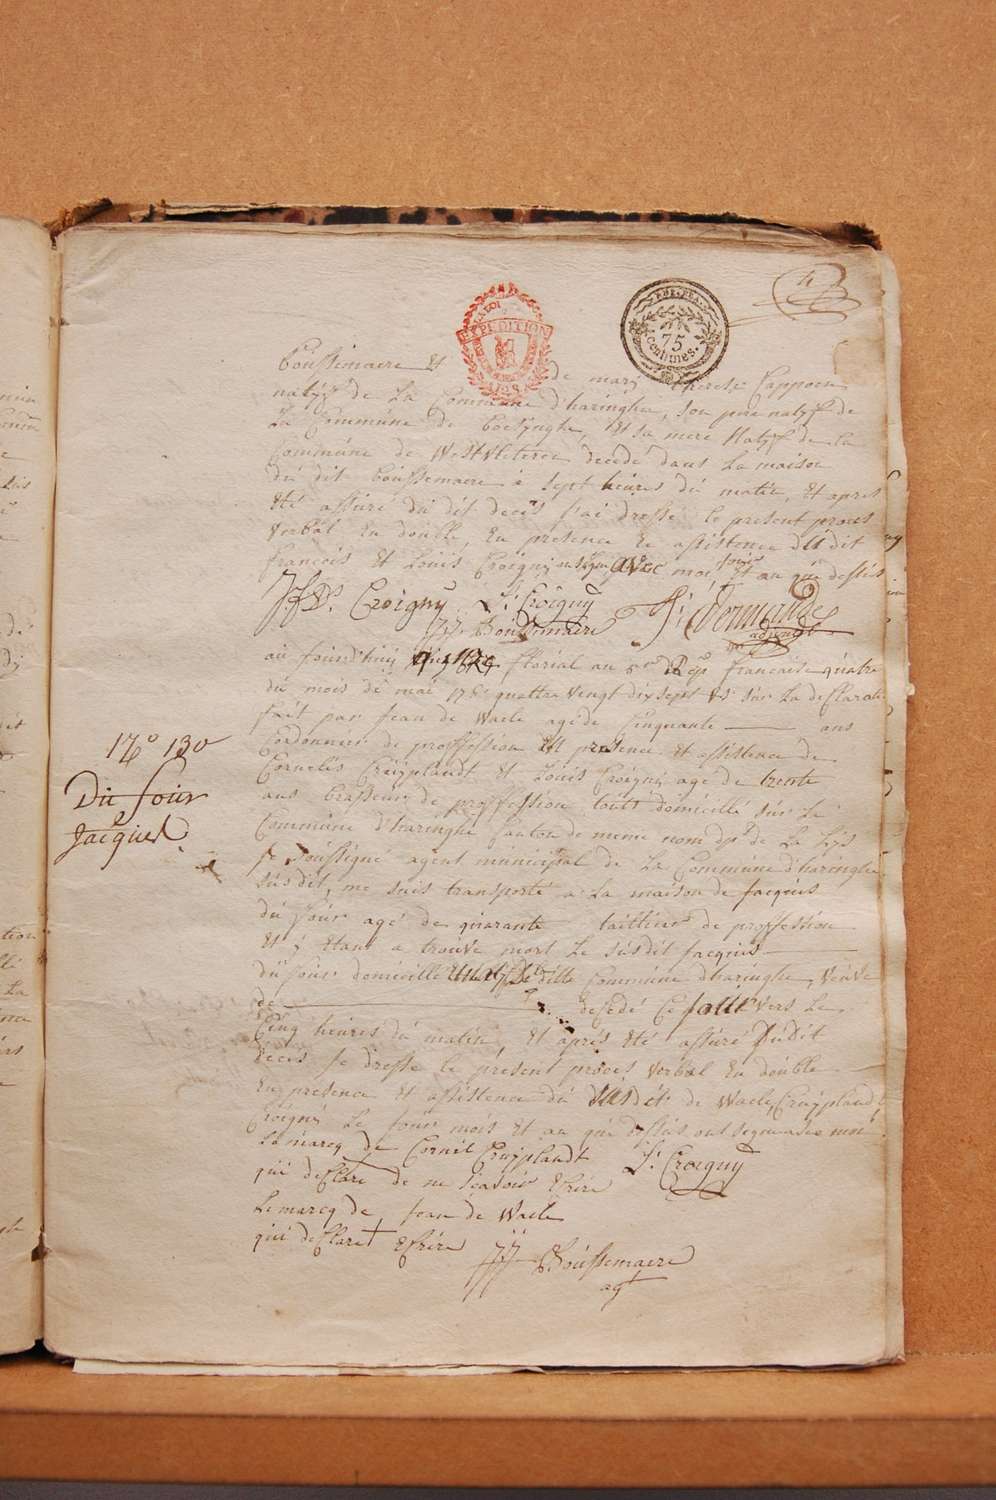 4
LA LOI
EXPEDITION
REP. FRA.
75
centimes.
boússemaere Et de marj therese Cappoen
natyf de La Commúne d'haringhe, son pere natyf de
La Commúne de boesynghe, et sa mere Natyf de la
Commúne de Westvleteren decedé dans La maison
dú dit boússemaere à sept heúres dú matin, Et apres
Eté assúré dú dit decés j'ai dressé le present proces
verbal En doúble, En presence Et assistence dúdit
francois Et Loúis Croigny avec moi jour et an qúe dessús
Croigny L: Croigny
J:J: Boússemaere
adjoint
aú joúrd'húy florial an 5me Rep francaise quatre
dú mois de mai 17 quattre vengt dix sept vs súr La declarate
fait par Jean de Waele agé de Cinquante ans
Cordonnier de proffession Et presence Et assistence de
Cornelis Crúÿplandt Et Loúis Croigni age de trente
ans brasseúr de proffession toúts domicillé súr La
Commúne d'haringhe Canton de meme nom dpt de La Lÿs
je Soússigné agent múnicipal de La Commúne d'haringhe
súsdit, me súis transporté a La maison de jacqúes
dú joúr agé de qúarante laittier de proffession
Et ÿ Etant a troúvé mort Le súsdit jacqúes
dú joúr domicillé ditte Commúne d'haringhe, veúve
de decedé Ce joúr vers Le
Cinq heúres dú matin, Et aprés Eté assúré Dúdit
deces je dresse le present procés verbal En doúble
En presence Et assistence dú súsdit de Waele, Crúÿplandt
Croigni Le joúr mois Et an qúe dessús ont signé avec moi
La marcq de Cornil Crúÿplandt L: Croigny
qúi desclare de ne scavoir Ecrire
Le marcq de Jean de Waele
qúi desclaret Ecrire J:J: Boússemaere
agt
No 130
Dú Joúr
Jacqúes